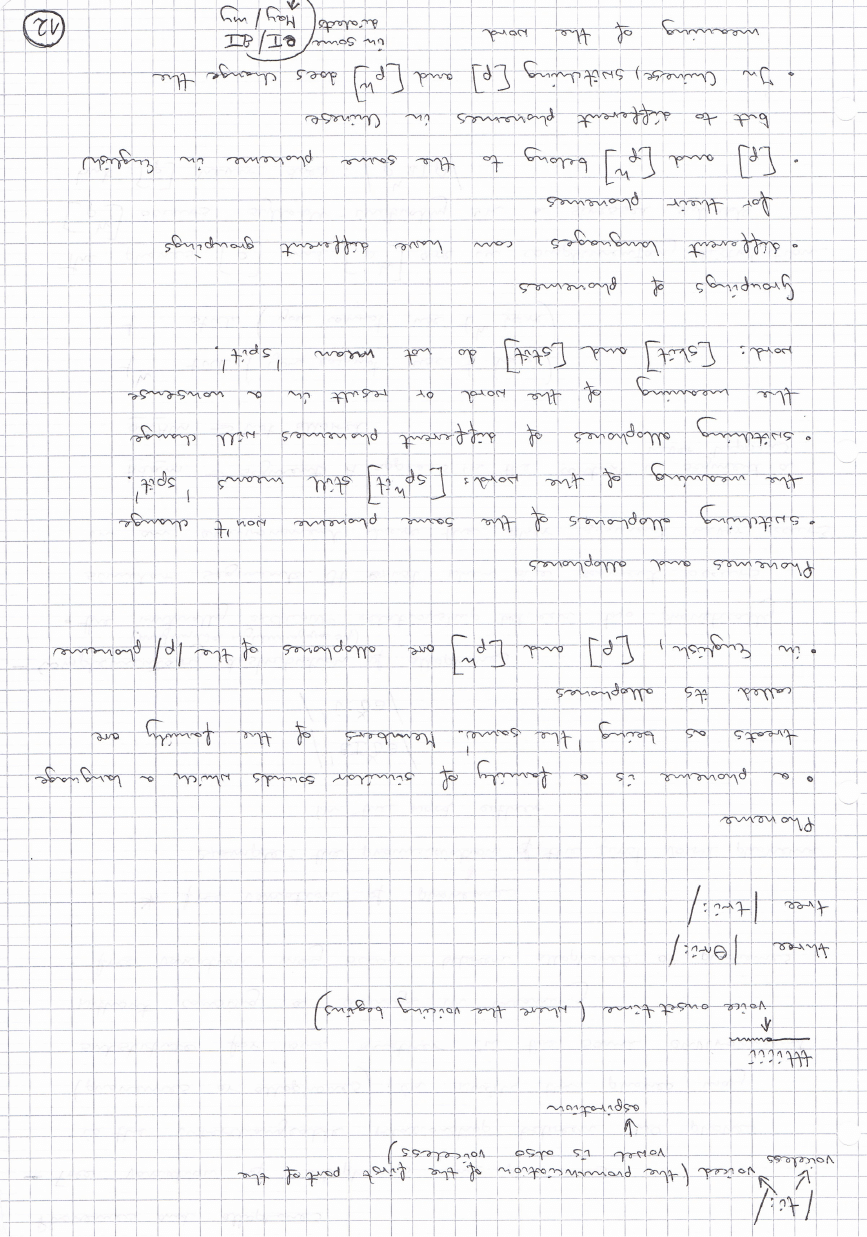 /ti:/
voiceless voiced (the pronunciation of the first part of the
vowel is also voiceless)
aspiration
tttiiii
voice onset time (where the voicing begins)
three /θri:/
tree /tri:/
Phoneme
• a phoneme is a family of similar sounds which a language
treats as being 'the same'. Members of the family are
called its allophones
• in English, [p] and [pʰ] are allophones of the /p/ phoneme
Phonemes and allophones
• switching allophones of the same phoneme won't change
the meaning of the word: [spʰit] still means 'spit'.
• switching allophones of different phonemes will change
the meaning of the word or result in a nonsense
word: [skit] and [stit] do not mean 'spit'.
Groupings of phonemes
• different languages can have different groupings
for their phonemes
• [p] and [pʰ] belong to the same phoneme in English
but to different phonemes in Chinese
• In Chinese, switching [p] and [pʰ] does change the
meaning of the word
in some dialects
eI/aI
May/my
12